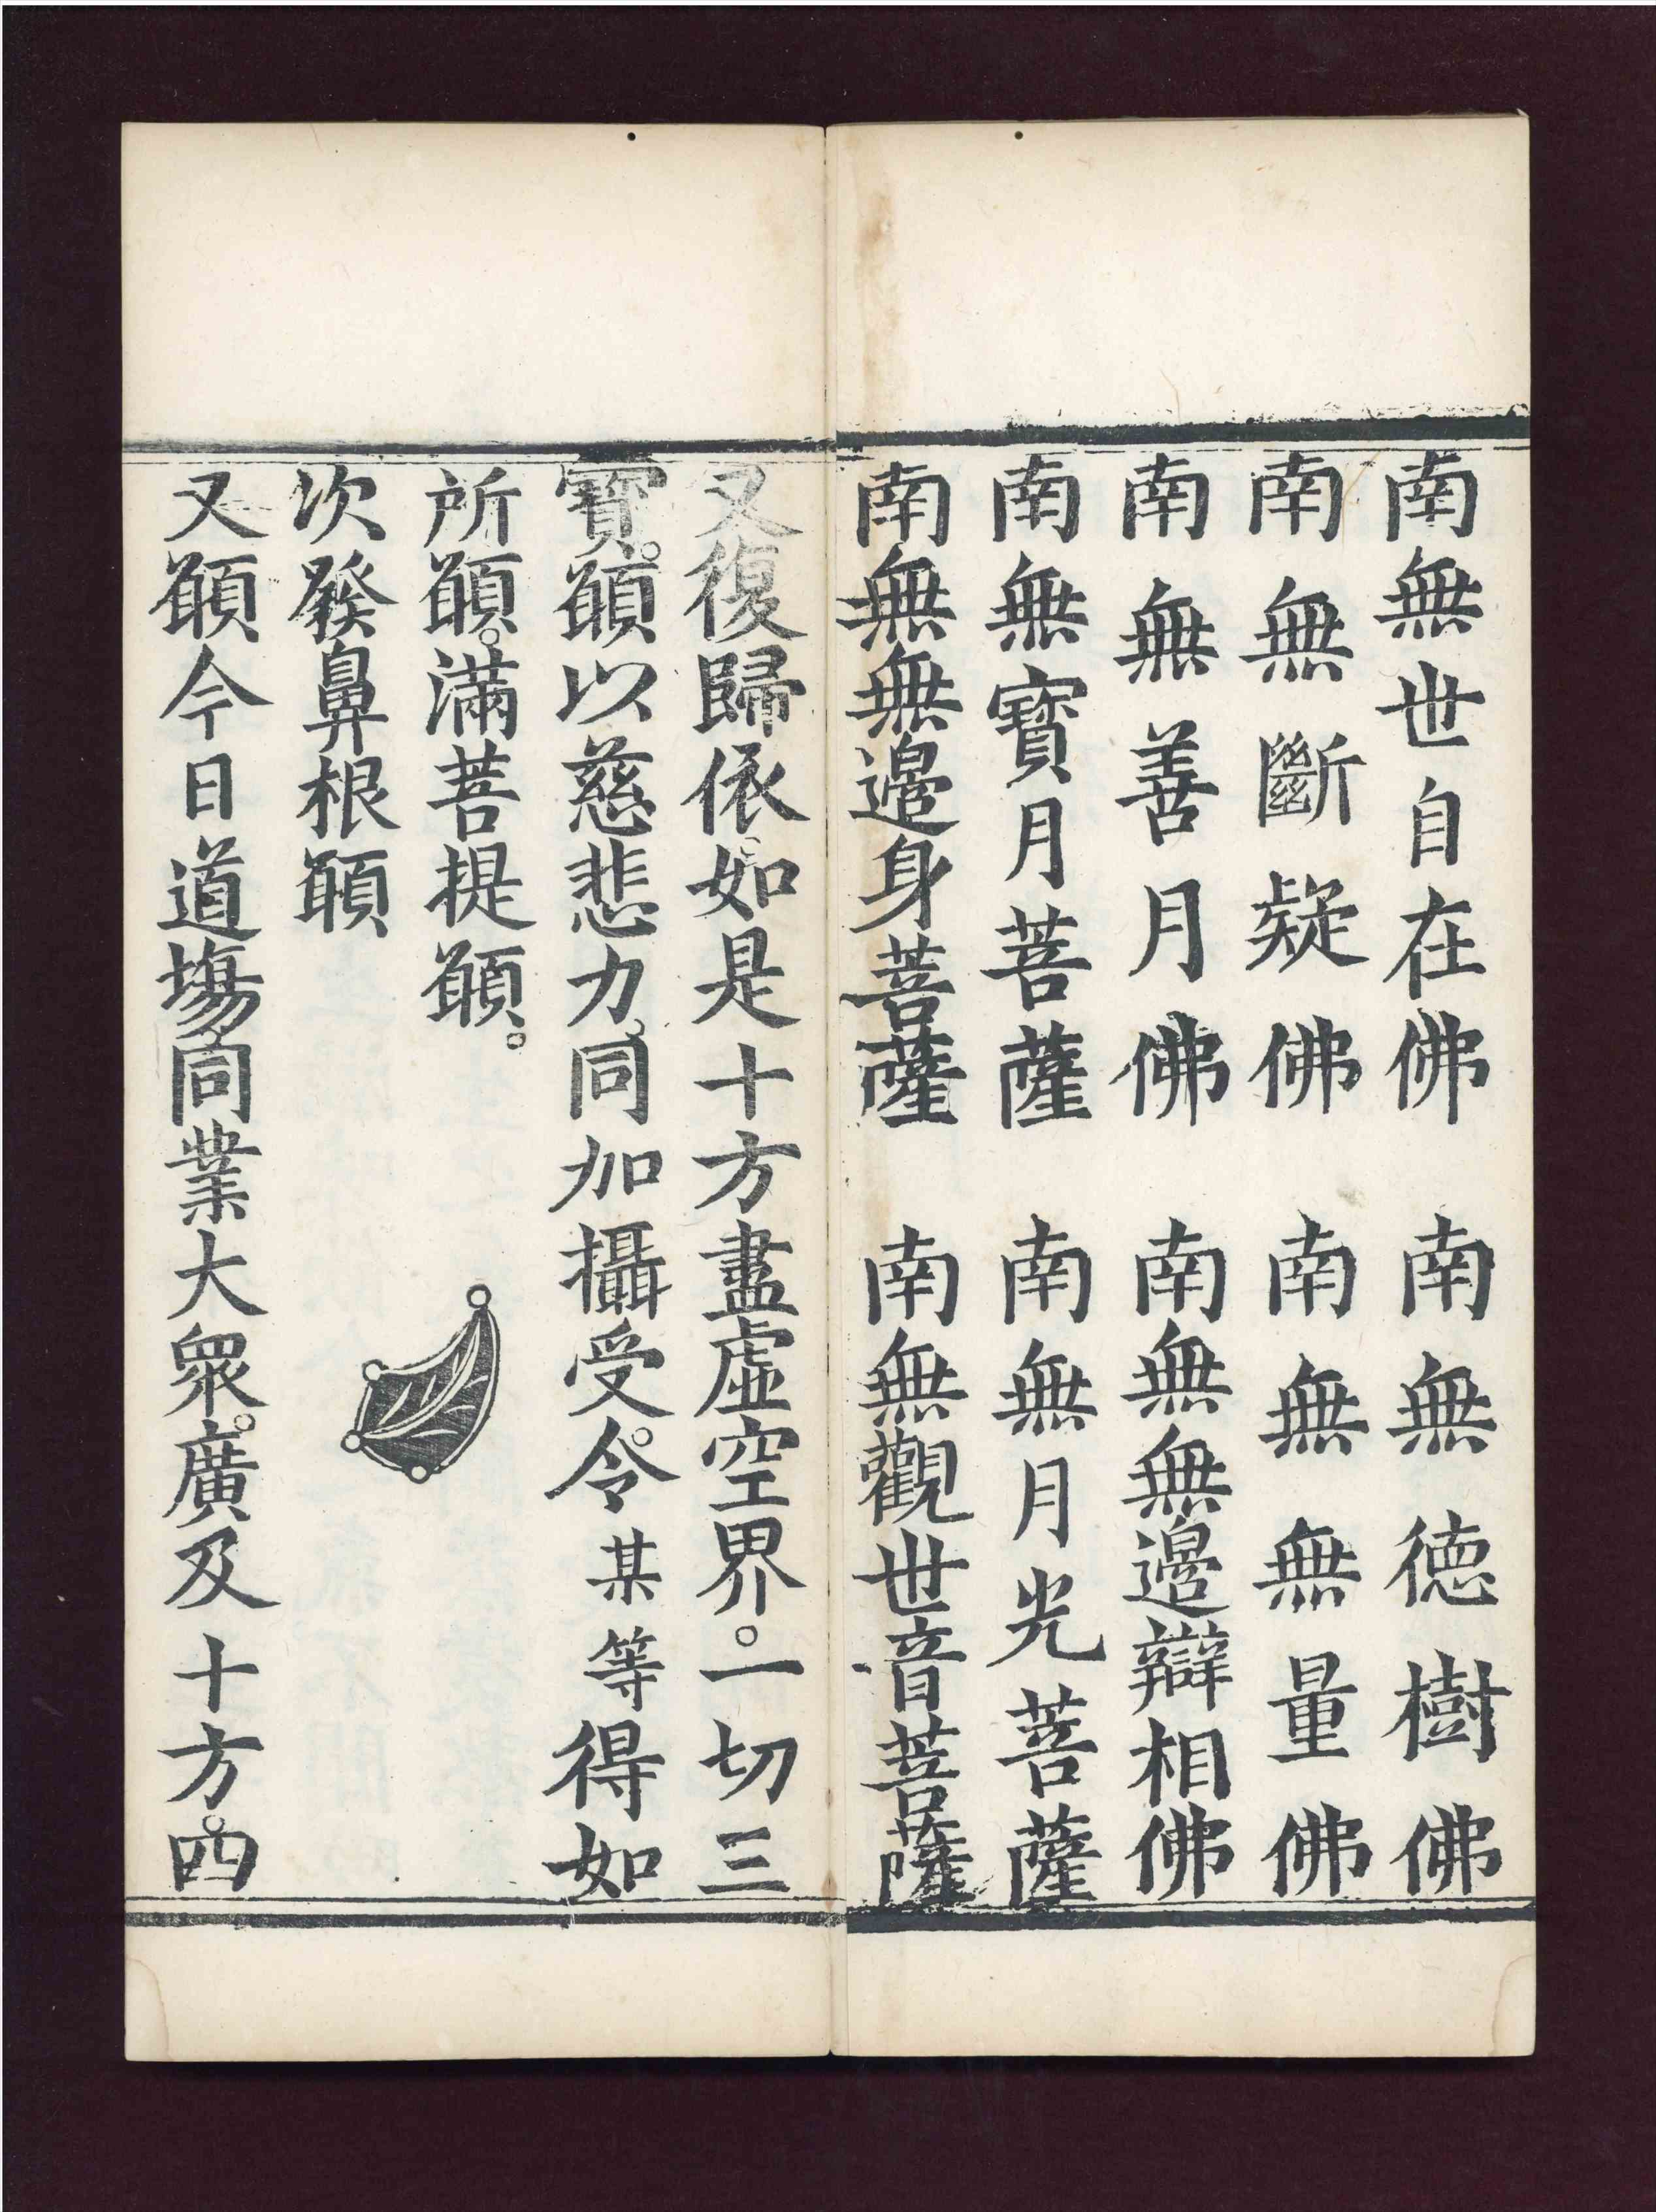 南無世自在佛　南無德樹佛
南無斷疑佛　南無無量佛
南無善月佛　南無無邊辯相佛
南無寶月菩薩　南無月光菩薩
南無無邊身菩薩　南無觀世音菩薩
又復歸依。如是十方盡虛空界。一切三
寶。願以慈悲力。同加攝受。令某等得如
所願。滿菩提願。
次發鼻根願
又願今日道場同業大眾。廣及十方。四